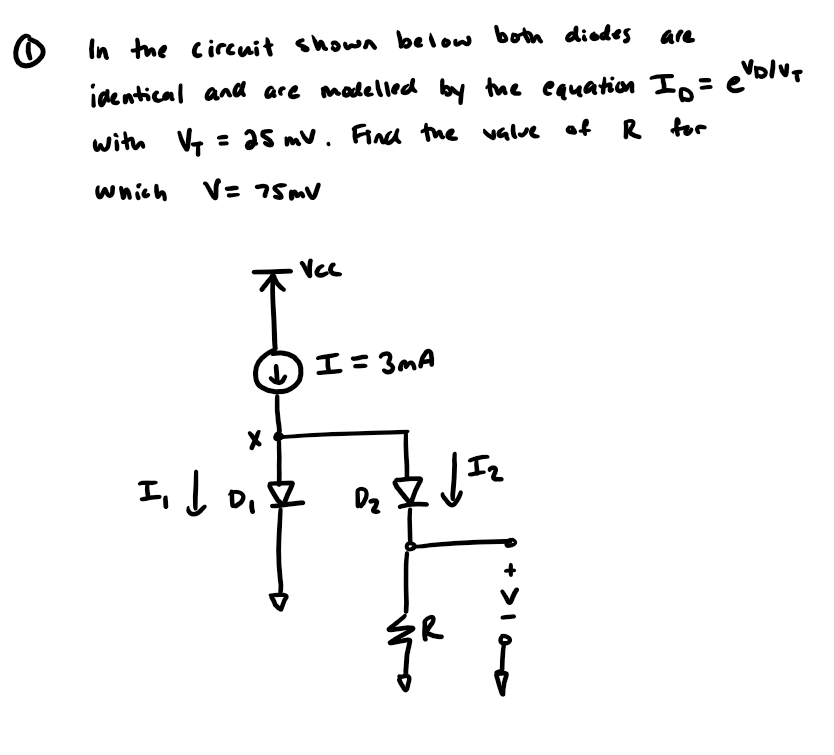 ① In the circuit shown below both diodes are
identical and are modelled by the equation I_D = e^{V_D/V_T}
with V_T = 25 mV. Find the value of R for
which V = 75mV
Vcc
I = 3mA
X
I_1 D_1 D_2 I_2
+
V
-
R